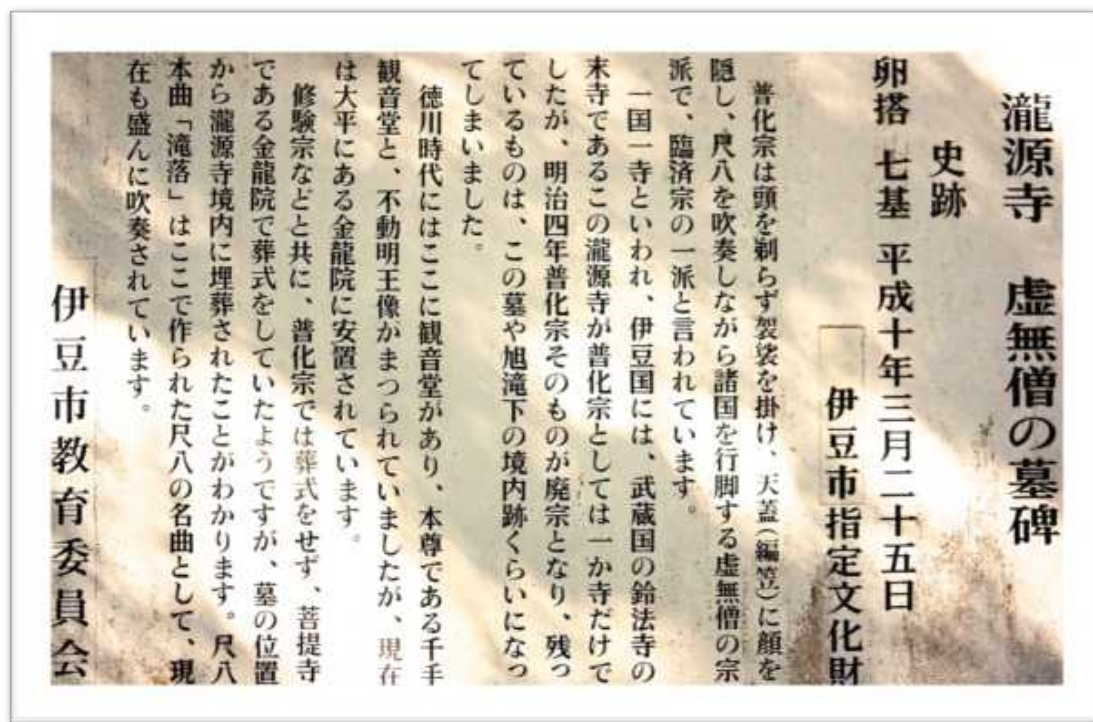 瀧源寺　虚無僧の墓碑
史跡
卵搭　七基　平成十年三月二十五日
伊豆市指定文化財
普化宗は頭を剃らず袈裟を掛け、天蓋（編笠）に顔を
隠し、尺八を吹奏しながら諸国を行脚する虚無僧の宗
派で、臨済宗の一派と言われています。
一国一寺といわれ、伊豆国には、武蔵国の鈴法寺の
末寺であるこの瀧源寺が普化宗としては一か寺だけで
したが、明治四年普化宗そのものが廃宗となり、残っ
ているものは、この墓や旭滝下の境内跡くらいになっ
てしまいました。
徳川時代にはここに観音堂があり、本尊である千手
観音堂と、不動明王像がまつられていましたが、現在
は大平にある金龍院に安置されています。
修験宗などと共に、普化宗では葬式をせず、菩提寺
である金龍院で葬式をしていたようですが、墓の位置
から瀧源寺境内に埋葬されたことがわかります。尺八
本曲「滝落」はここで作られた尺八の名曲として、現
在も盛んに吹奏されています。
伊豆市教育委員会